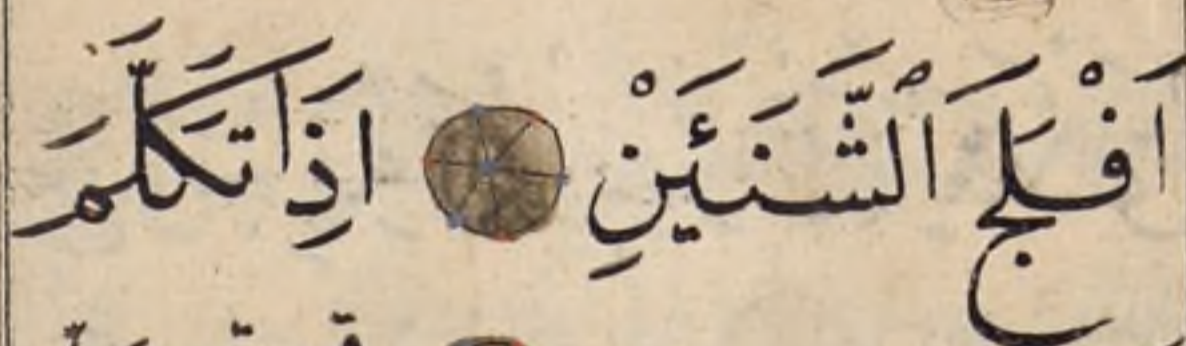 اَفْلَجَ الشَّنَئَيْنِ اِذَا تَكَلَّمَ